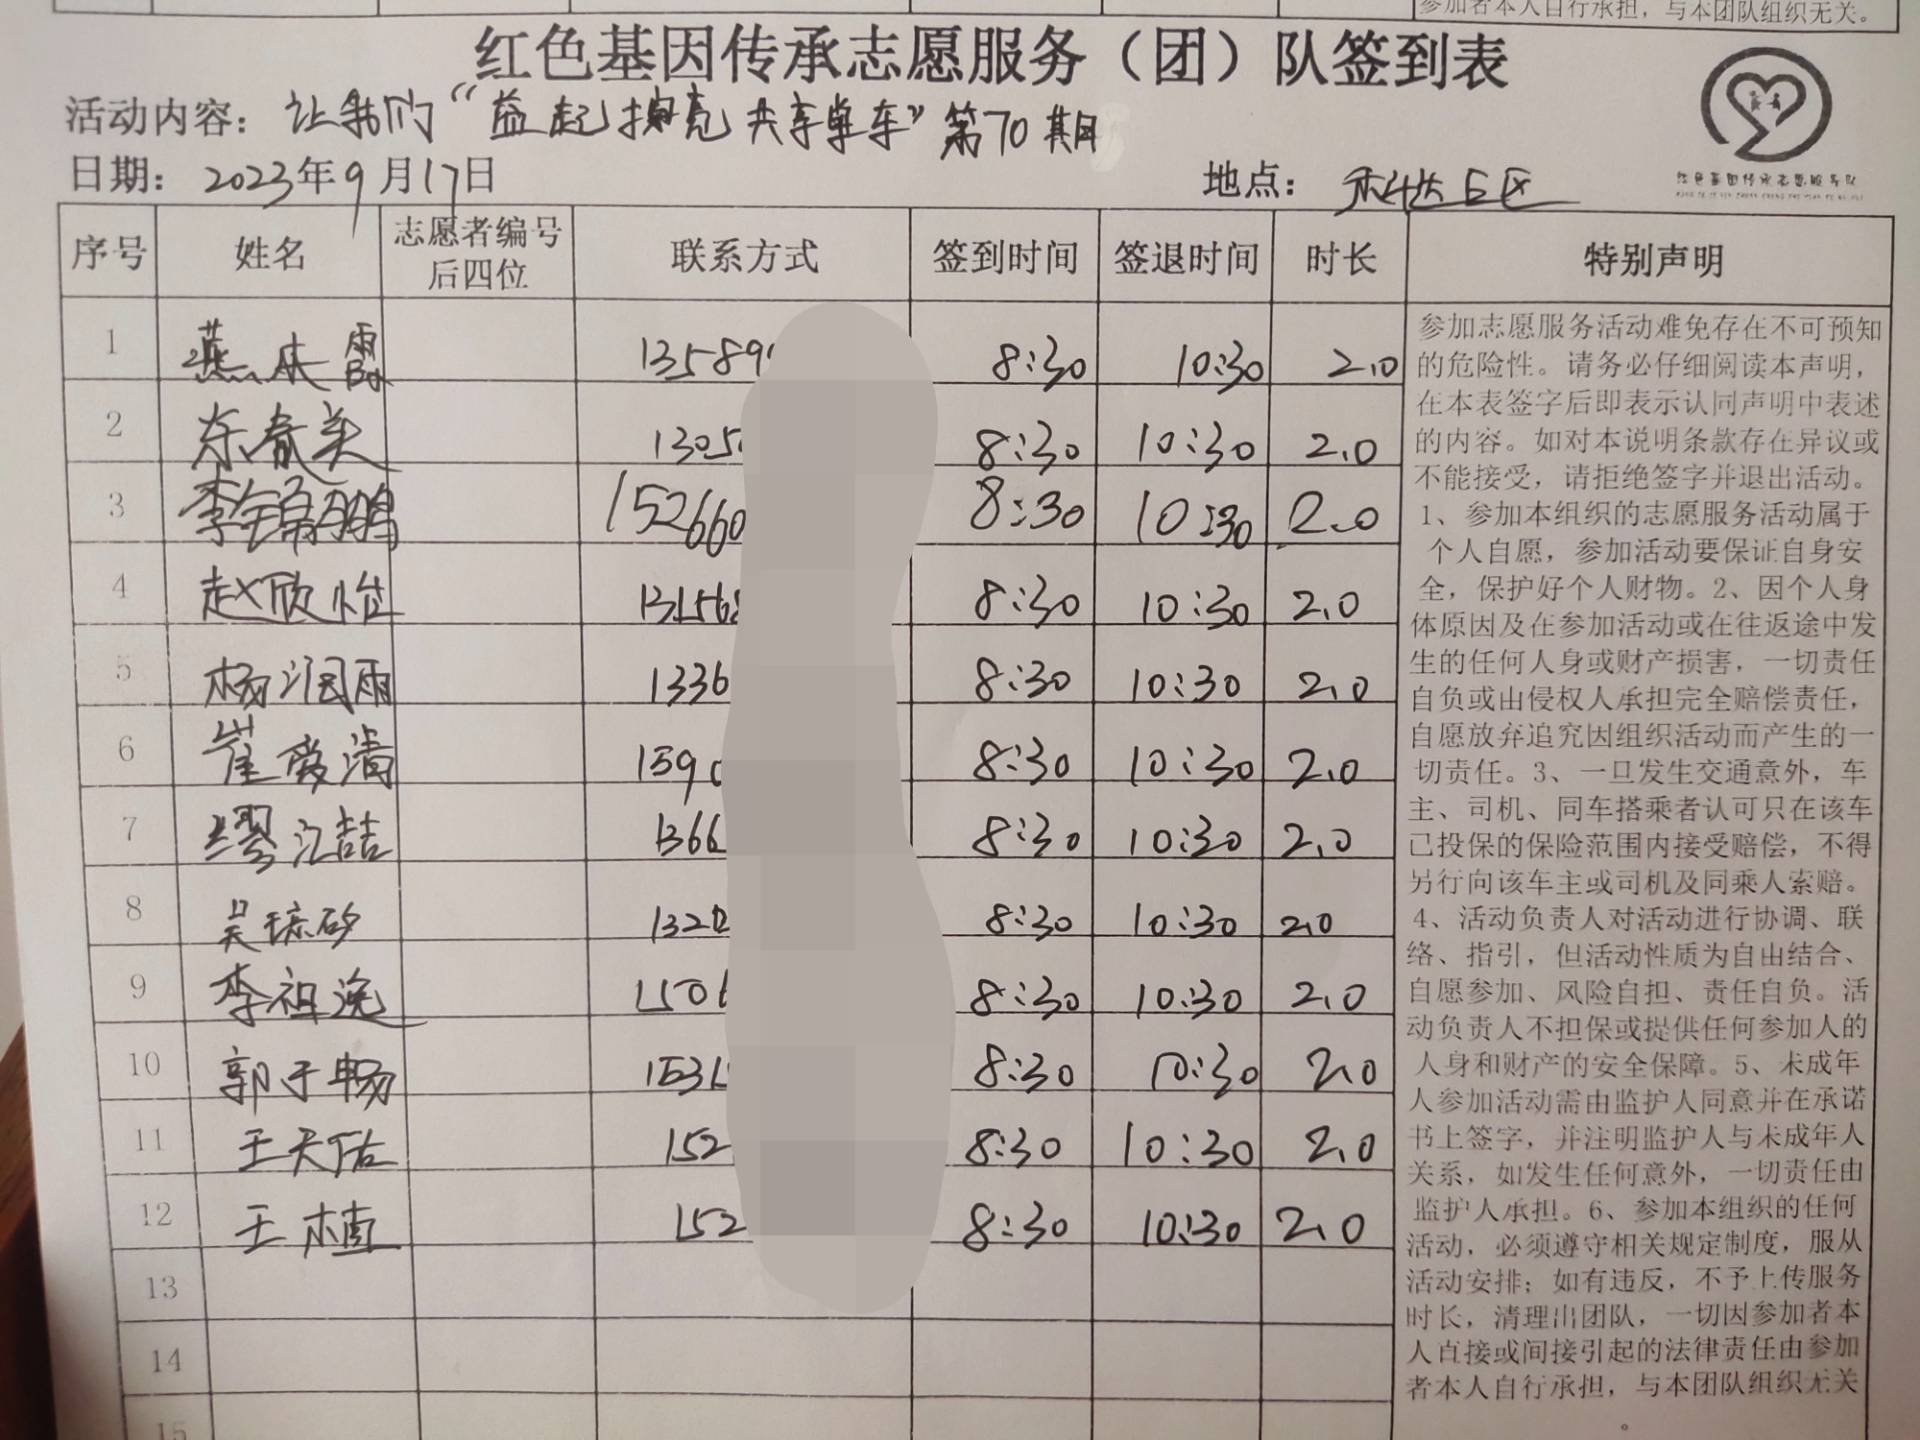 参加者本人自行承担，与本团队组织无关。
红色基因传承志愿服务（团）队签到表
活动内容：让我们“益起擦亮共享单车”第70期
日期：2023年9月17日
地点：
红色基因传承志愿服务队
序号 姓名 志愿者编号后四位 联系方式 签到时间 签退时间 时长 特别声明
1 燕 霞 13589 8:30 10:30 2.0
2 东春美 1305 8:30 10:30 2.0
3 李锦鹏 152660 8:30 10:30 2.0
4 赵欣怡 13156 8:30 10:30 2.0
5 杨润雨 1336 8:30 10:30 2.0
6 崔爱清 1590 8:30 10:30 2.0
7 缪江喆 1366 8:30 10:30 2.0
8 吴 132 8:30 10:30 2.0
9 李祖逸 1506 8:30 10:30 2.0
10 郭于畅 1531 8:30 10:30 2.0
11 王天佑 152 8:30 10:30 2.0
12 王植 152 8:30 10:30 2.0
13
14
15
参加志愿服务活动难免存在不可预知
的危险性。请务必仔细阅读本声明，
在本表签字后即表示认同声明中表述
的内容。如对本说明条款存在异议或
不能接受，请拒绝签字并退出活动。
1、参加本组织的志愿服务活动属于
个人自愿，参加活动要保证自身安
全，保护好个人财物。2、因个人身
体原因及在参加活动或在往返途中发
生的任何人身或财产损害，一切责任
自负或由侵权人承担完全赔偿责任，
自愿放弃追究因组织活动而产生的一
切责任。3、一旦发生交通意外，车
主、司机、同车搭乘者认可只在该车
已投保的保险范围内接受赔偿，不得
另行向该车主或司机及同乘人索赔。
4、活动负责人对活动进行协调、联
络、指引，但活动性质为自由结合、
自愿参加、风险自担、责任自负。活
动负责人不担保或提供任何参加人的
人身和财产的安全保障。5、未成年
人参加活动需由监护人同意并在承诺
书上签字，并注明监护人与未成年人
关系，如发生任何意外，一切责任由
监护人承担。6、参加本组织的任何
活动，必须遵守相关规定制度，服从
活动安排；如有违反，不予上传服务
时长，清理出团队，一切因参加者本
人直接或间接引起的法律责任由参加
者本人自行承担，与本团队组织无关
。